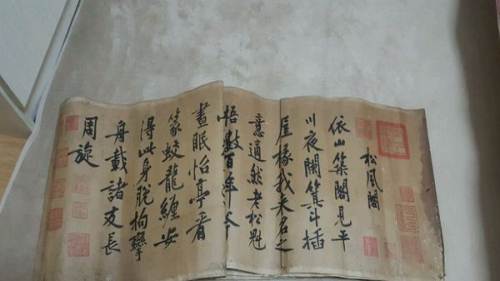 松風閣
依山築閣見平
川夜闌箕斗插
屋椽我來名之
意適然老松魁
梧數百年
晝眠怡亭看
篆蛟龍纏安
得此身脫拘攣
舟載諸友長
周旋